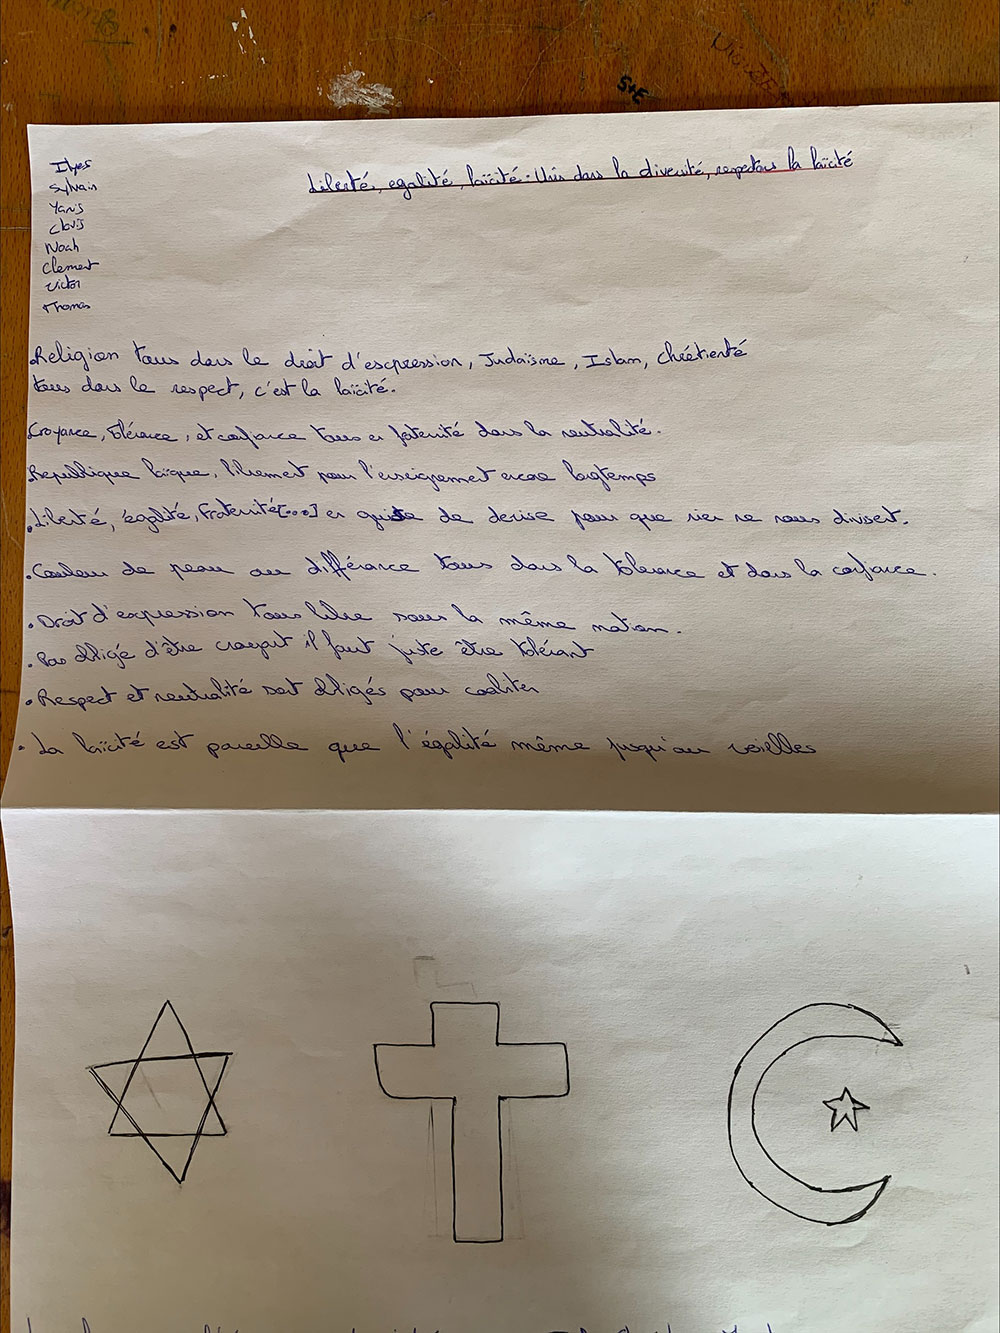 S+E
Ilyes
Sylvain
Yanis
Clovis
Noah
Clement
Victor
Thomas
Liberté, egalité, laïcité : Unis dans la diversité, respectons la laïcité
.Religion tous dans le droit d'escpression, Judaïsme, Islam, Chrétienté
tous dans le respect, c'est la laïcité.
.Croyance, tolérance, et confiance tous en faternité dans la neutralité.
.Republique laïque, librement pour l'enseignement encore longtemps
.Liberté, égalité, fraternité[...] en guise de devise pour que rien ne nous divisent.
.Couleur de peau ou différance tous dans la tolerance et dans la confiance.
.Droit d'expression tous libre sous la même nation.
.Pas obligé d'être croyant il faut juste être tolérant
.Respect et neutralité sont obligés pour coabiter
.La laïcité est pareille que l'égalité même jusqu'au voielles